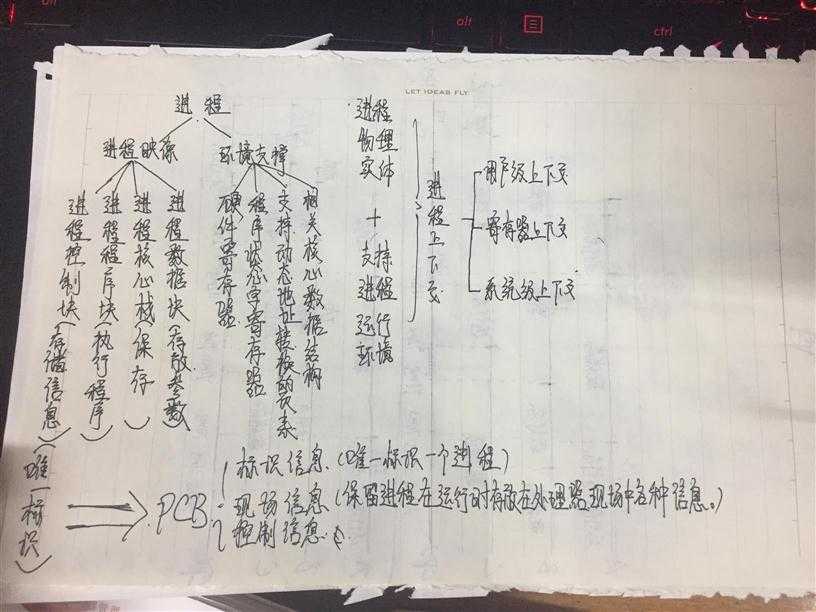 alt
ctrl
LET IDEAS FLY
进程
进程映像
环境支撑
进程控制块(存储信息)(唯一标识)
进程程序块(执行程序)
进程核心栈(保存)
进程数据块(存放参数)
硬件寄存器
程序状态字寄存器
支持动态地址转换的页表
相关核心数据结构
进程
物理
实体
+
支持
进程
运行
环境
进程上下文
用户级上下文
寄存器上下文
系统级上下文
PCB
标识信息(唯一标识一个进程)
现场信息(保留进程在运行时存放在处理器现场中各种信息。)
控制信息